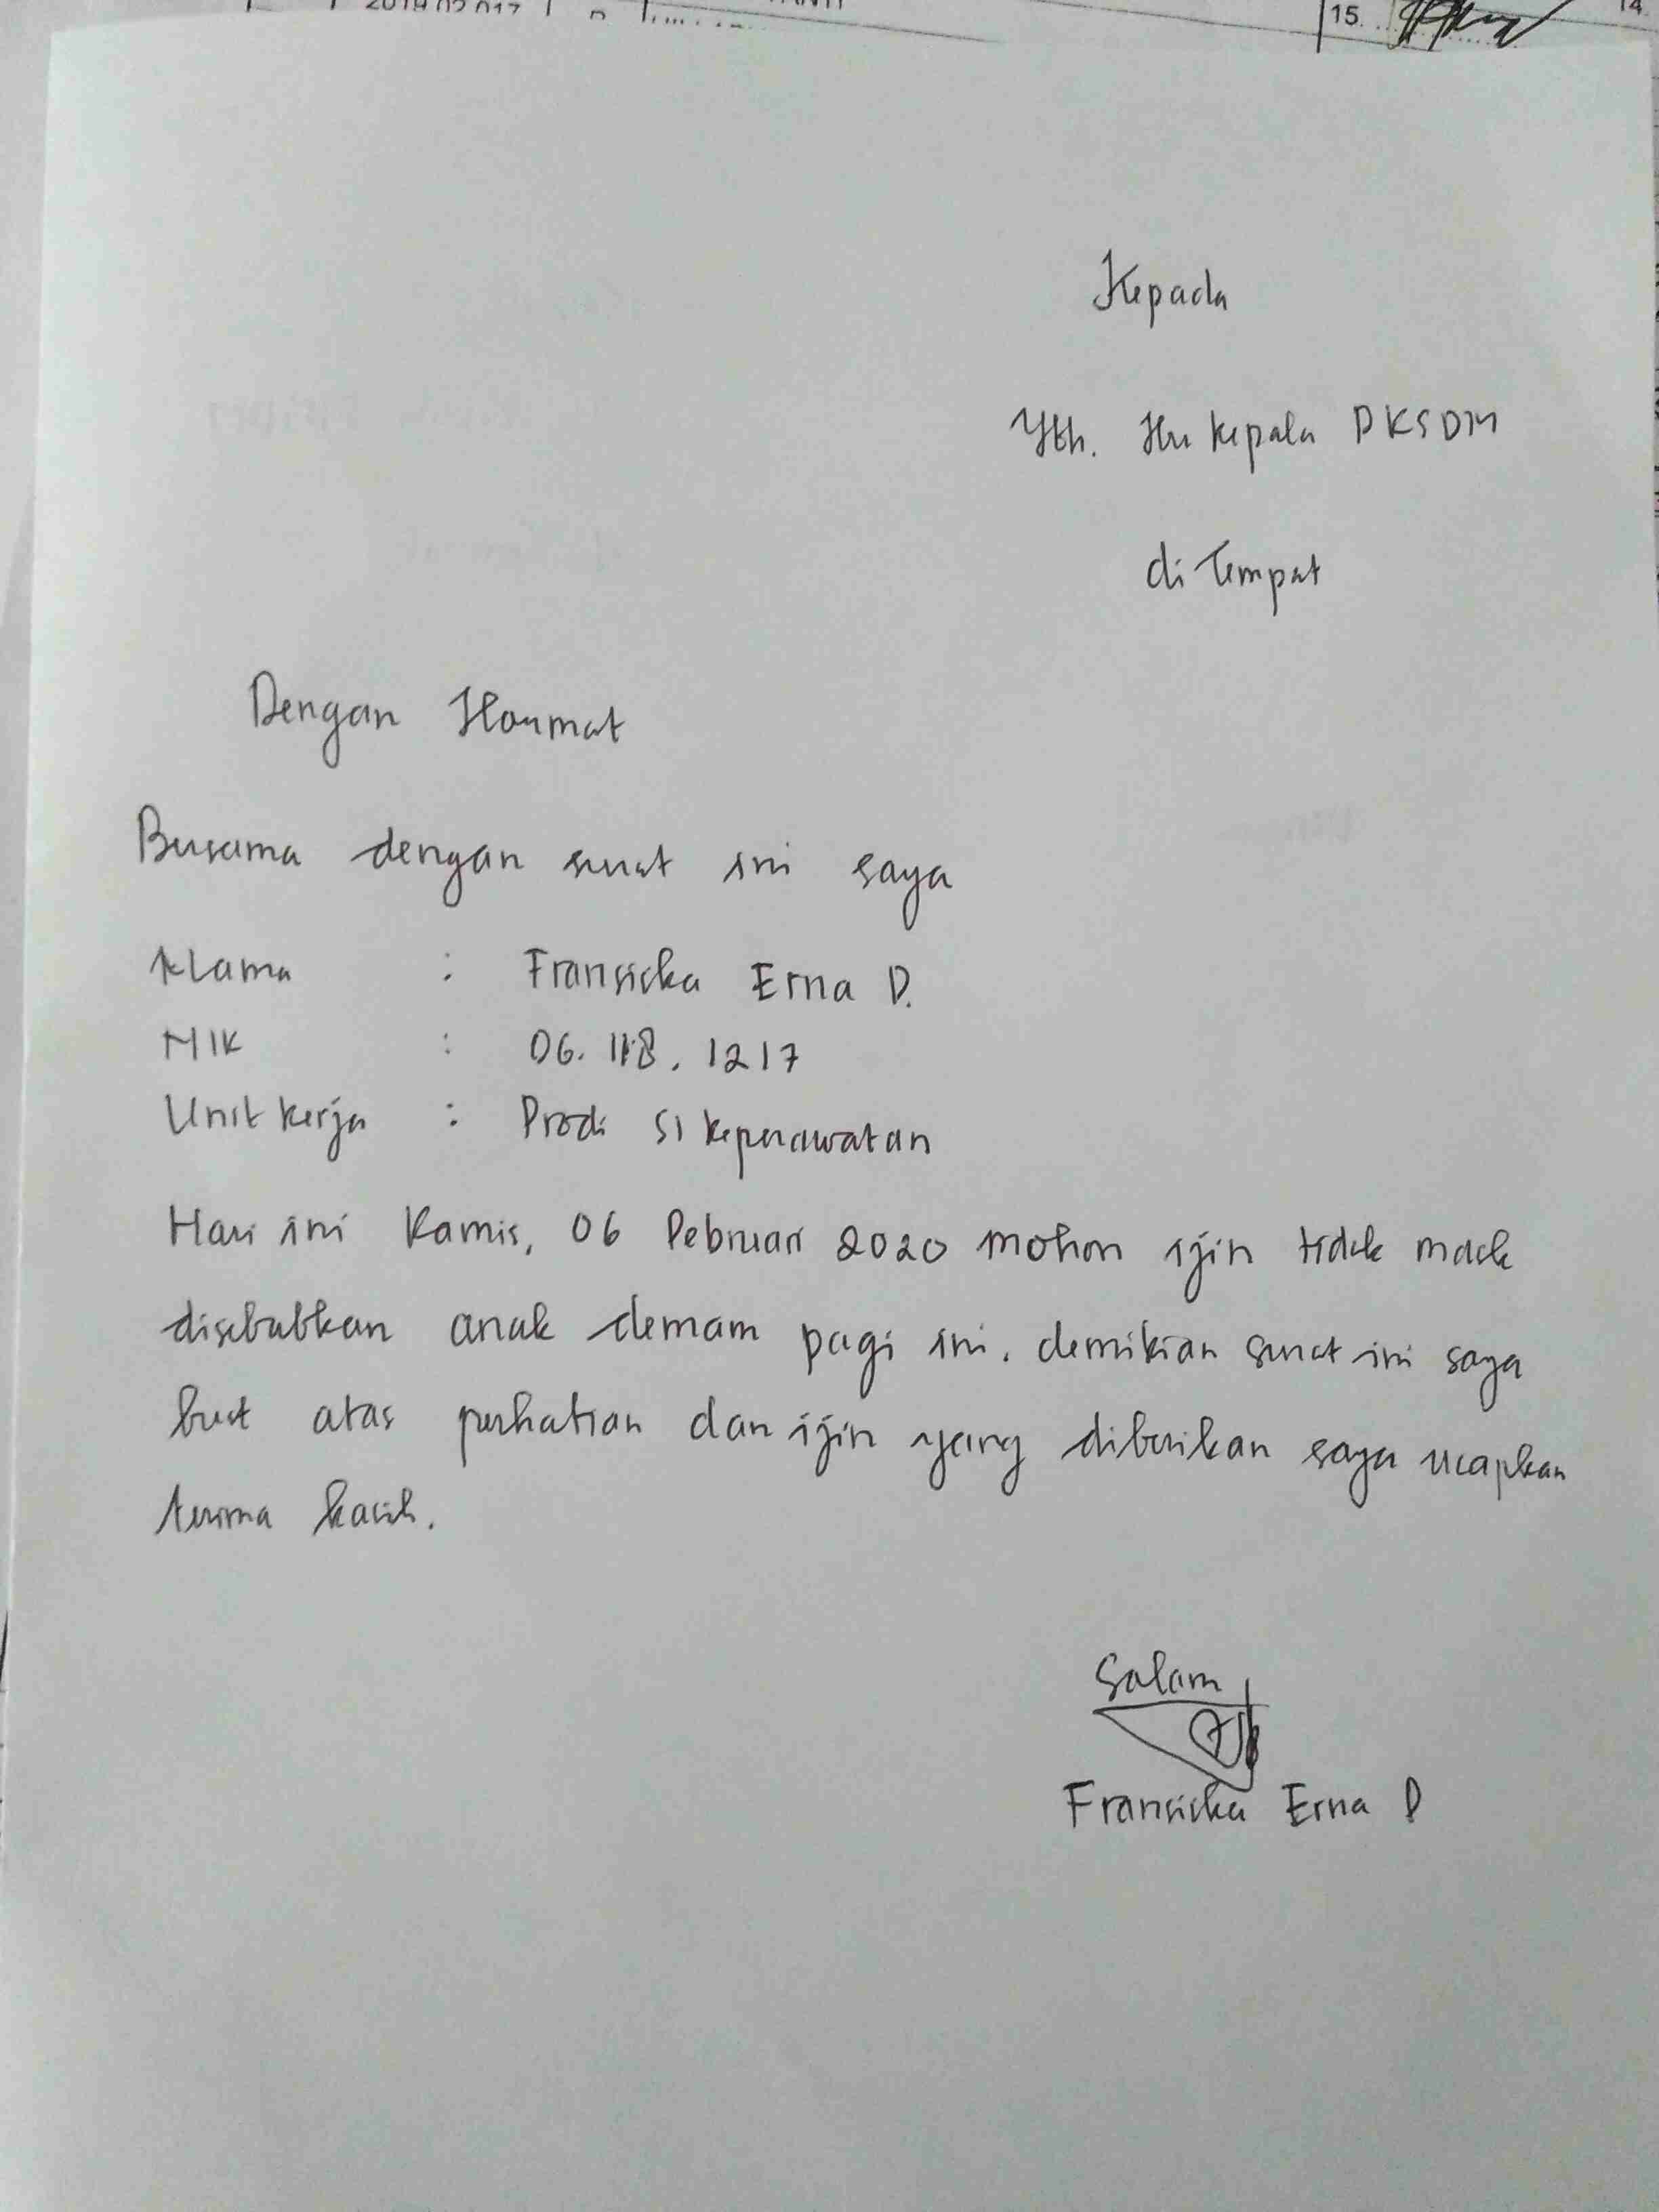 2019.02.017
15.
14.
Kepada
Yth. Kepala DKSDM
di Tempat
Dengan Hormat
Bersama dengan surat ini saya
Nama : Fransicka Erna D.
NIK : 06. 118. 1217
Unit kerja : Prodi S1 keperawatan
Hari ini Kamis, 06 Pebruari 2020 mohon ijin tidak masuk
disebabkan anak demam pagi ini. demikian surat ini saya
buat atas perhatian dan ijin yang diberikan saya ucapkan
terima kasih.
Salam
Fransicka Erna D